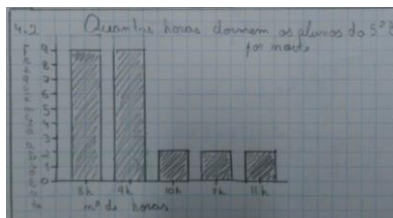 4.2 Quantas horas dormem os alunos do 5º
por noite
9
8
7
6
5
4
3
2
1
0
8h 9h 10h 7h 11h
nº de horas